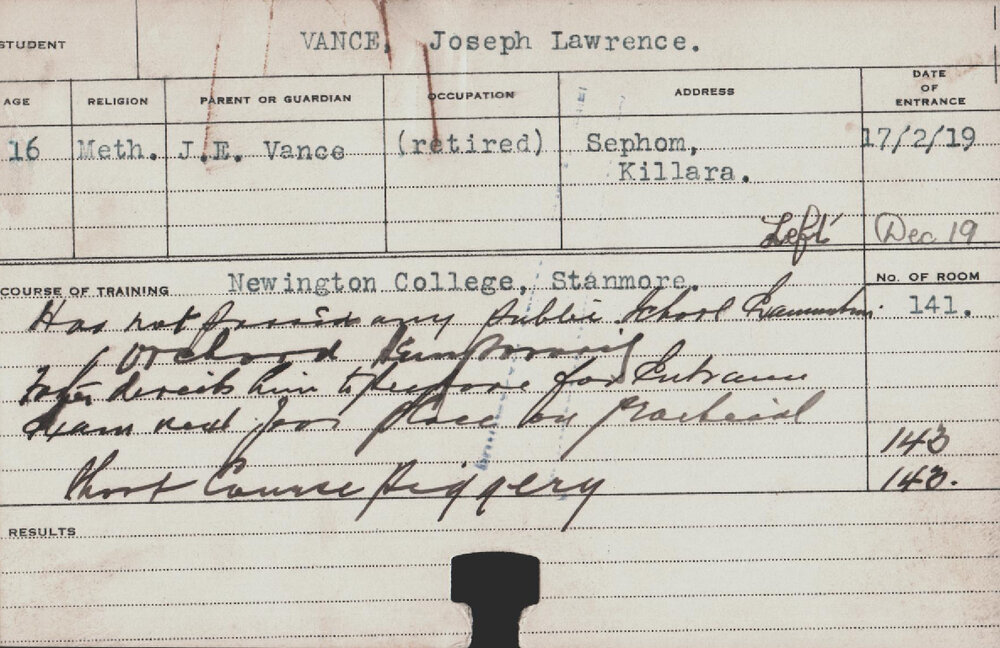 STUDENT VANCE, Joseph Lawrence.
AGE RELIGION PARENT OR GUARDIAN OCCUPATION ADDRESS DATE OF ENTRANCE
16 Meth. J.E. Vance (retired) Sephom, 17/2/19
Killara.
Left Dec 19
COURSE OF TRAINING Newington College, Stanmore. No. OF ROOM
Has not any Public School 141.
Orchard
him to prepare for Entrance
Exam next place on Practical
143
Short Course Piggery 143.
RESULTS